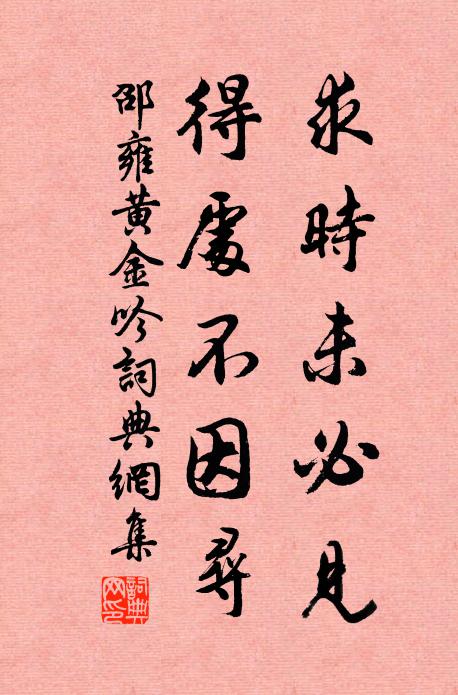 求時未必見
得處不因尋
邵雍黃金吟詞典網集
詞典
网